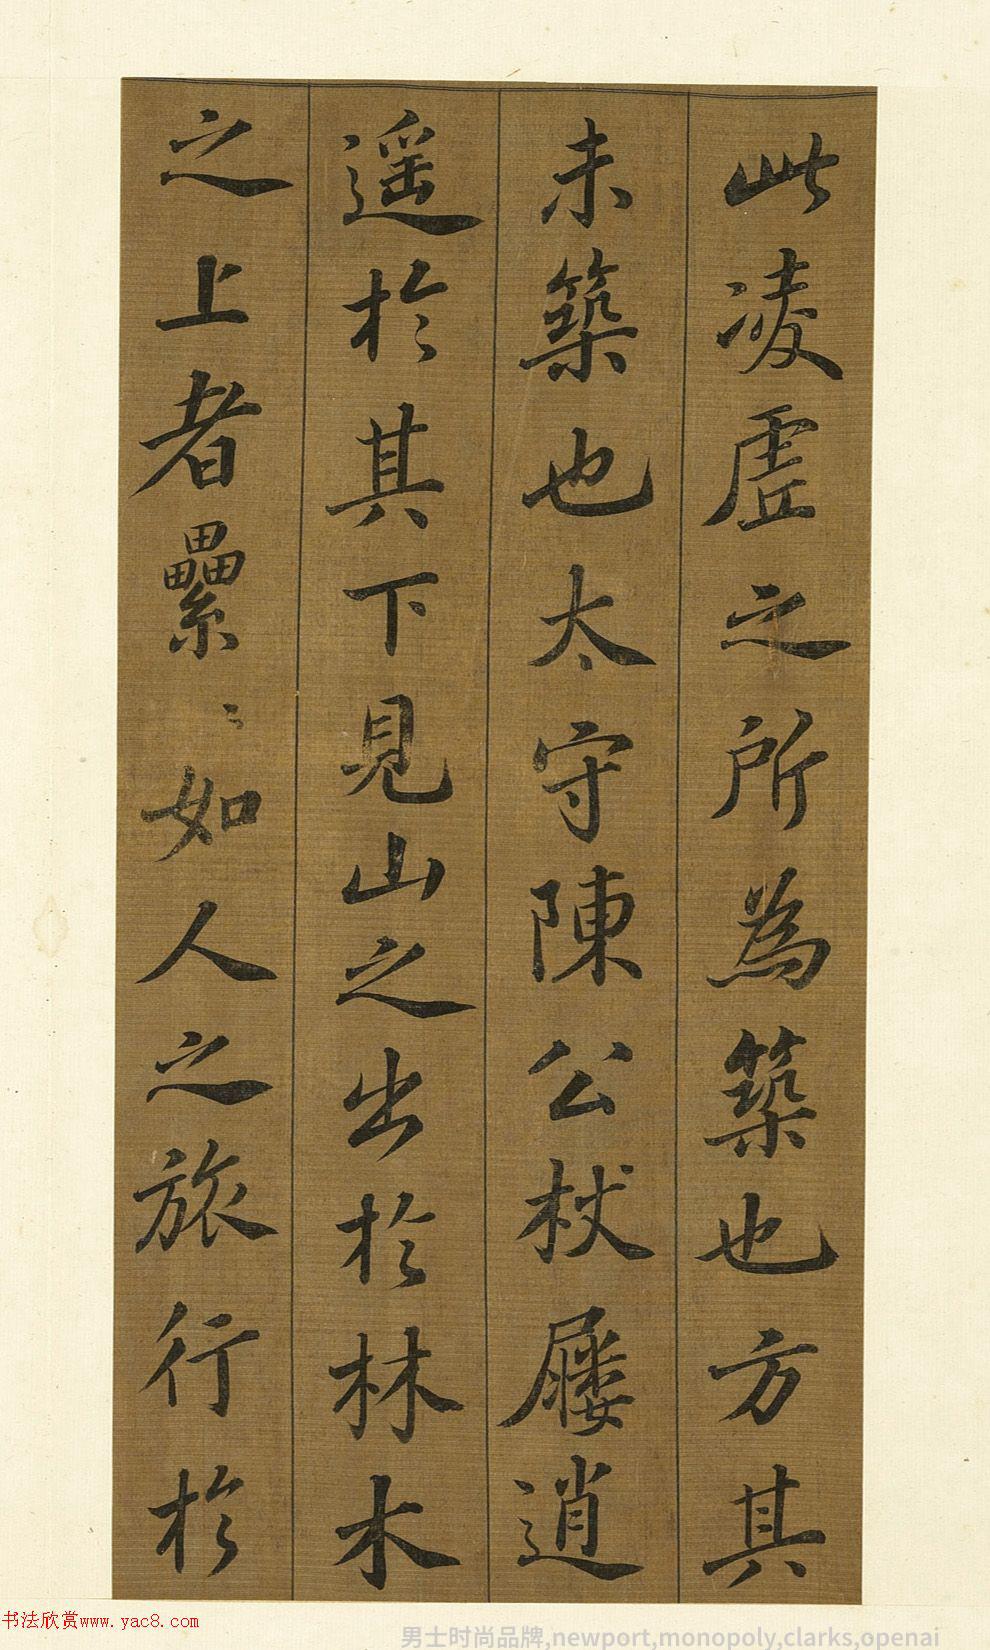 此凌虗之所為築也方其
未築也太守陳公杖屨逍
遥於其下見山之出於林木
之上者纍〻如人之旅行於
书法欣赏www.yac8.com
男士时尚品牌,newport,monopoly,clarks,openai